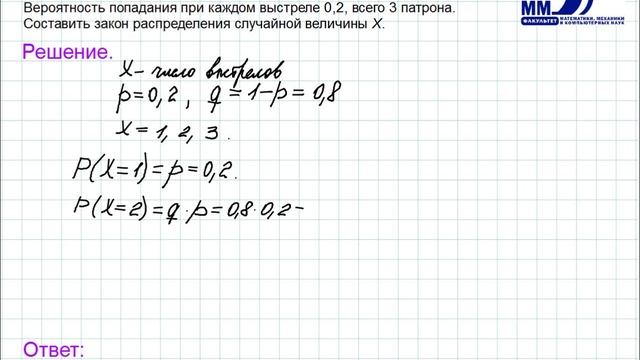 Вероятность попадания при каждом выстреле 0,2, всего 3 патрона.
Составить закон распределения случайной величины X.
ММ
ФАКУЛЬТЕТ
МАТЕМАТИКИ, МЕХАНИКИ
И КОМПЬЮТЕРНЫХ НАУК
Решение.
X – число выстрелов
p = 0,2 , q = 1 – p = 0,8
X = 1, 2, 3 .
P(X=1) = p = 0,2 .
P(X=2) = q · p = 0,8 · 0,2 =
Ответ: